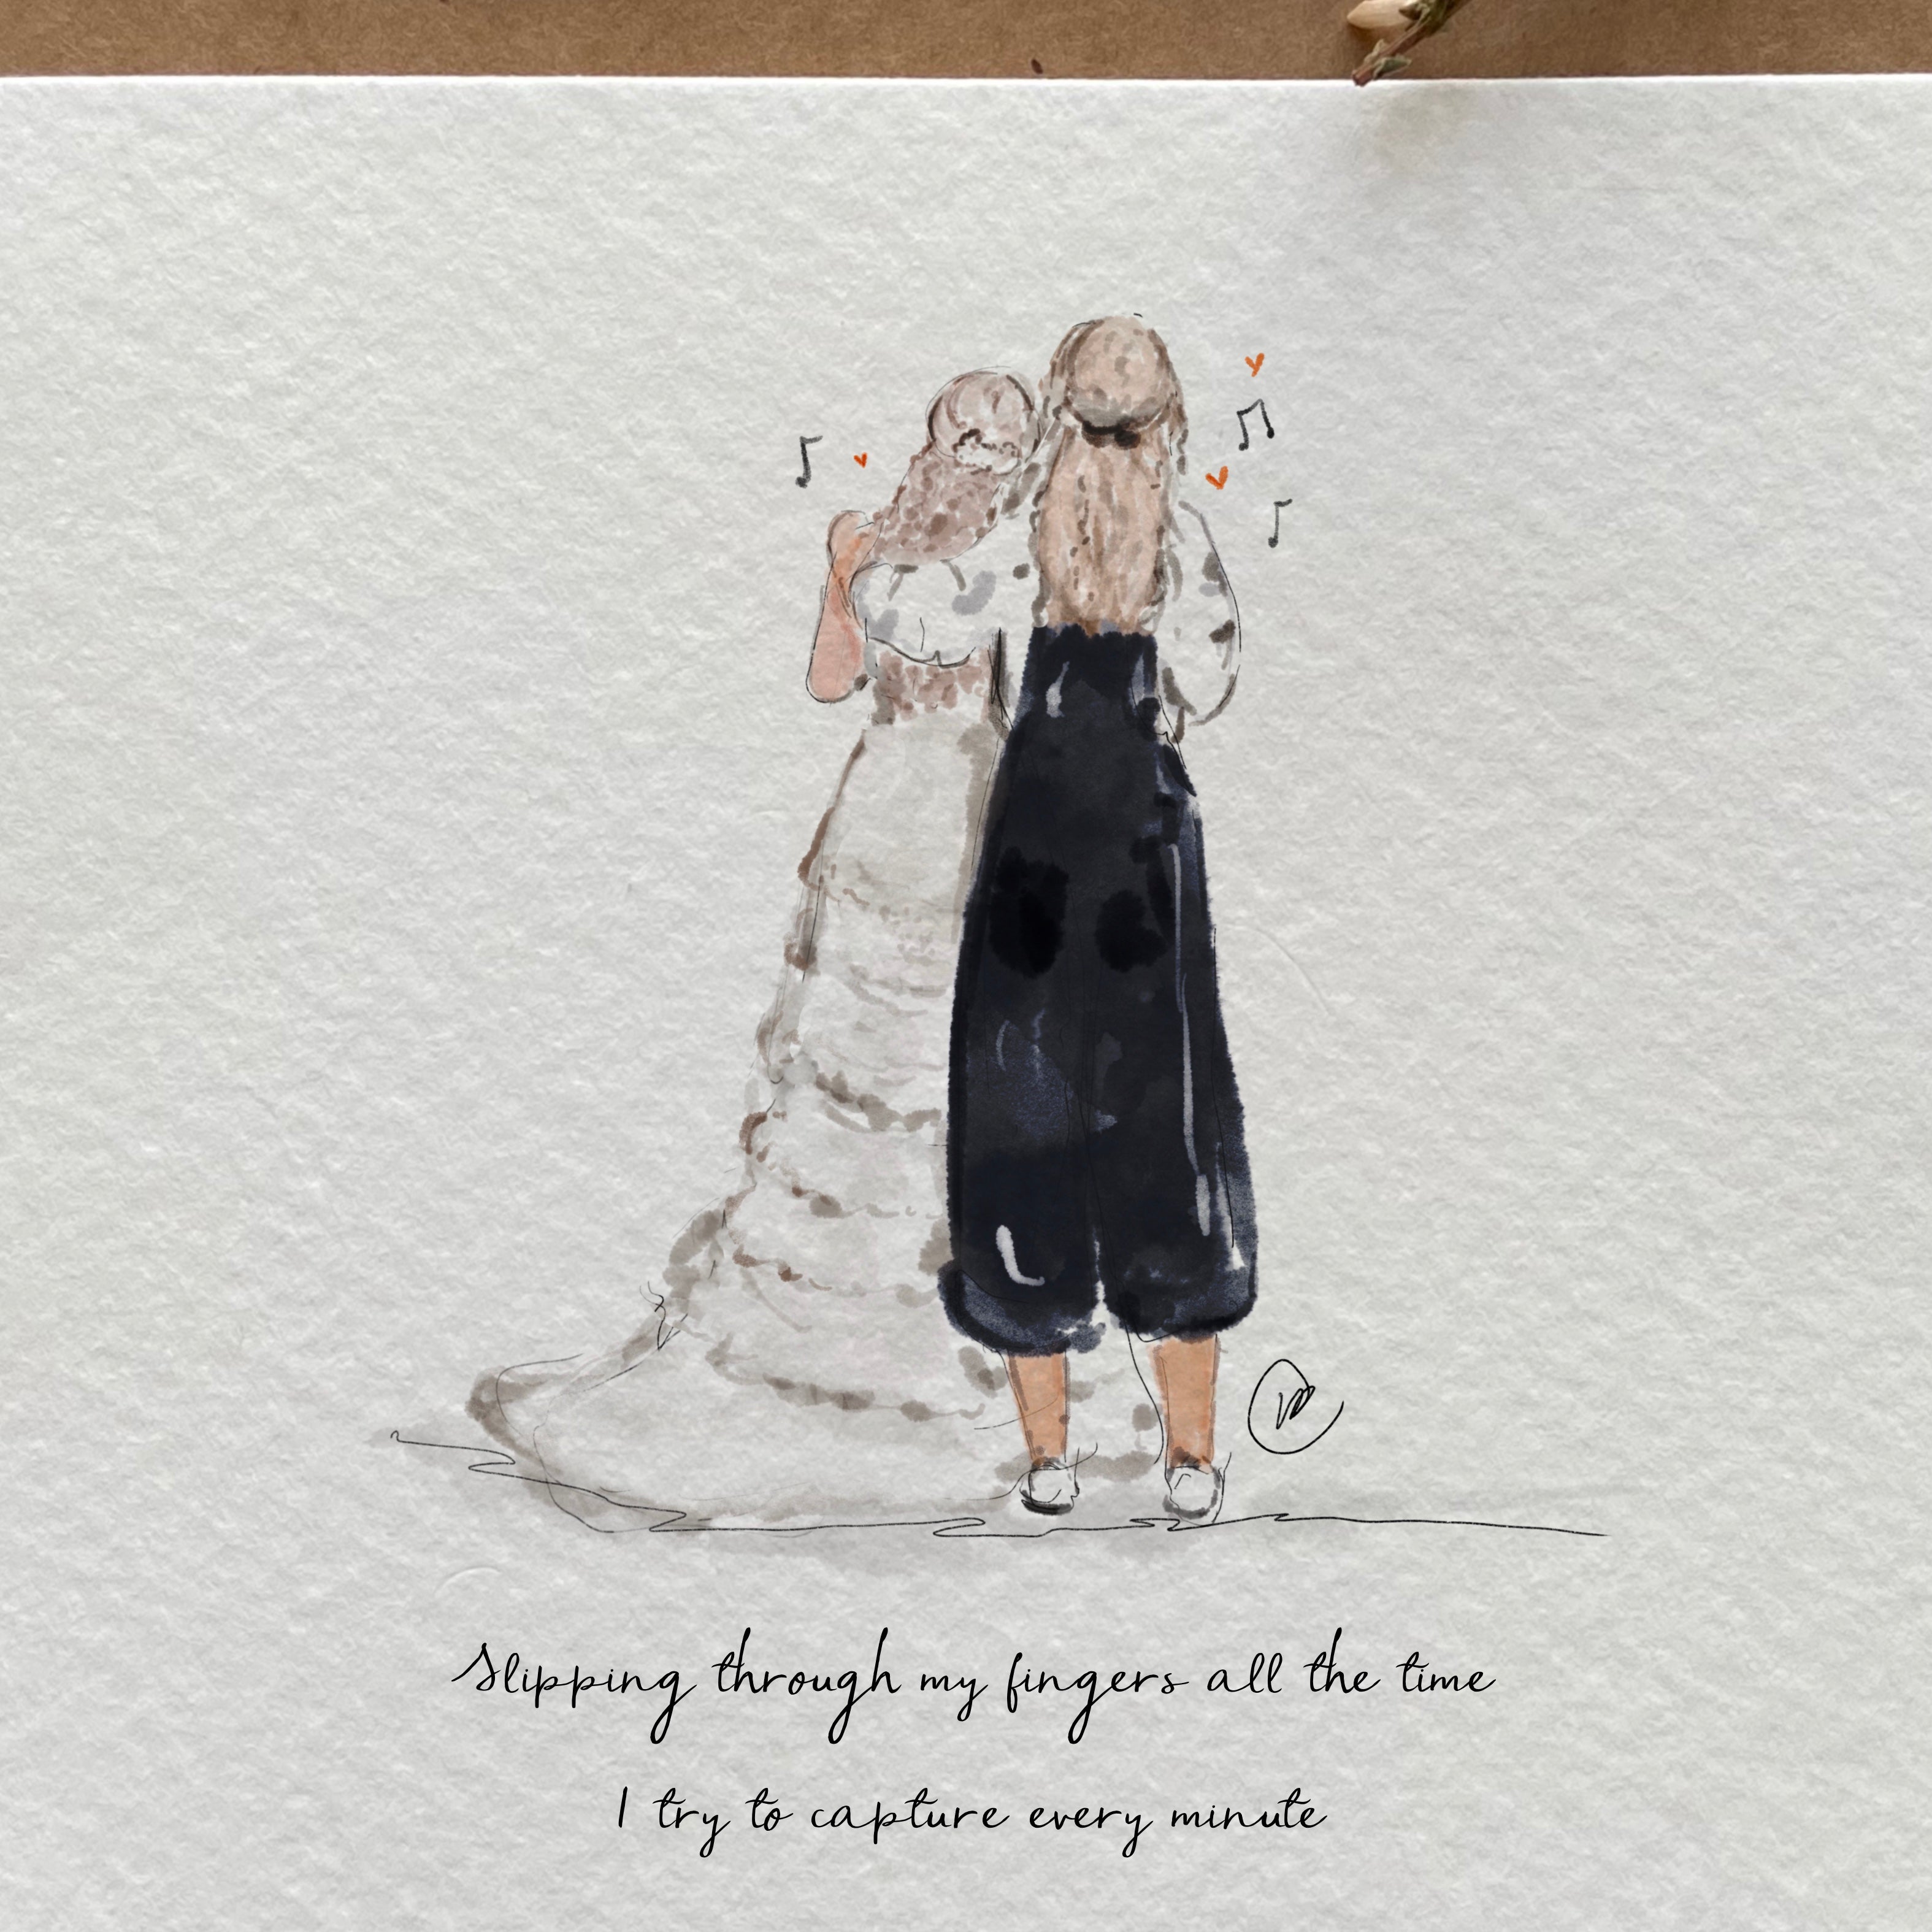 Slipping through my fingers all the time
I try to capture every minute